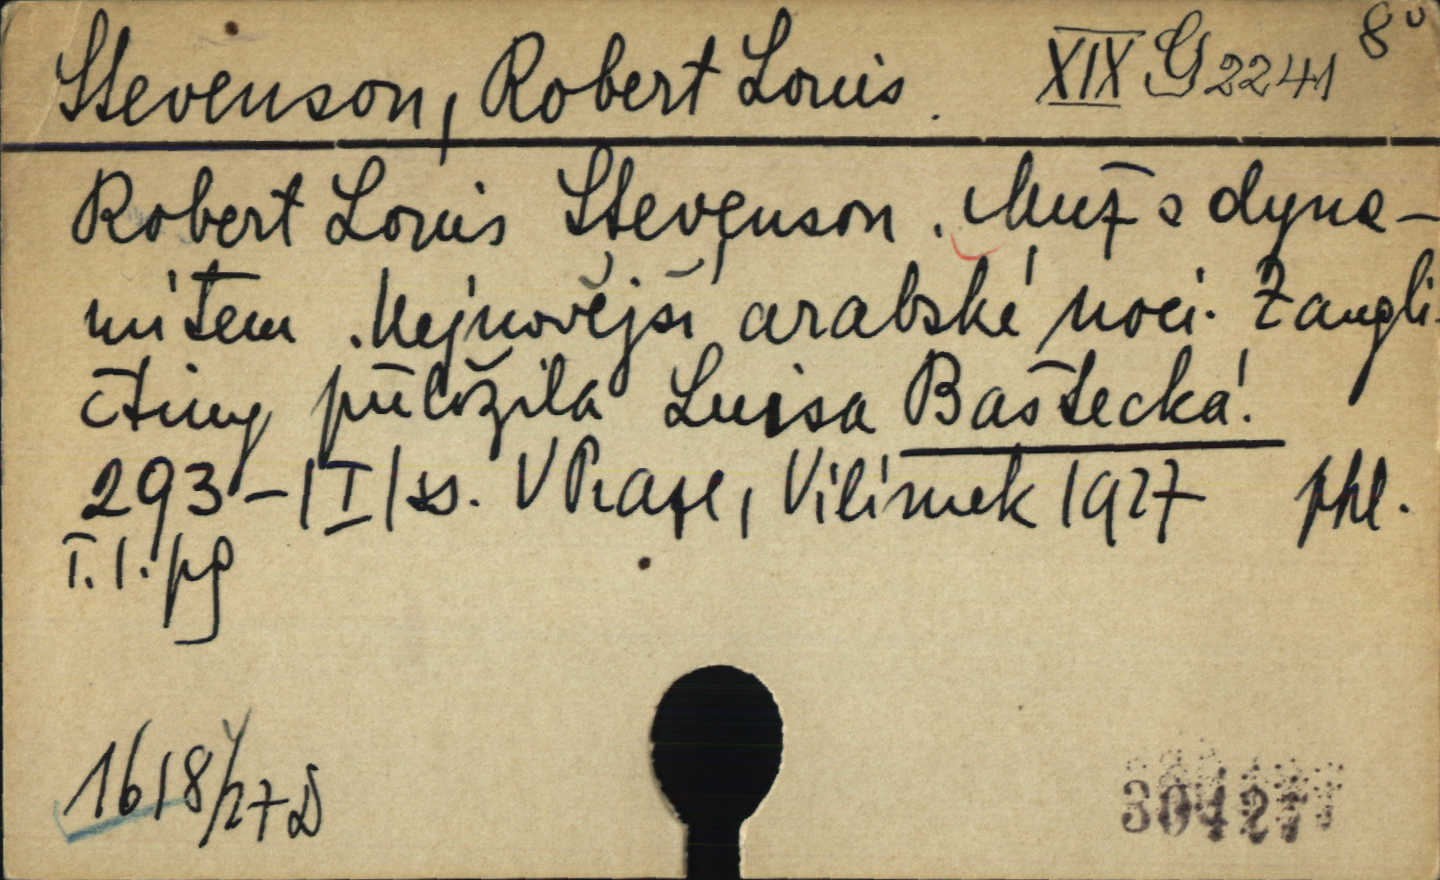 Stevenson, Robert Louis. XIX G 2241 8°
Robert Louis Stevenson. Muž s dyna-
mitem. Nejnovější arabské noci. Z angli-
čtiny přeložila Luisa Baštecká.
293-|I| ss. V Praze, Vilímek 1927 phl.
I. 1. pg
1618/27 D
304277